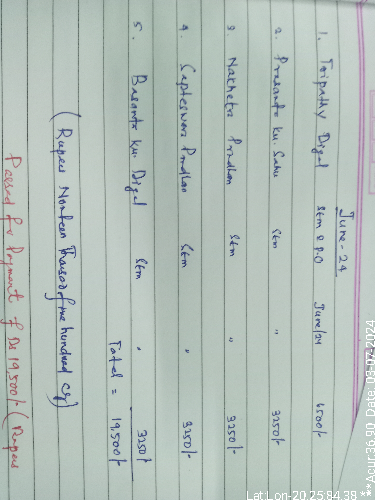 June-24
1. Tripathy Digal Stm & P.O June/24 6500/-
2. Prasanta Ku. Sahu Stm " 3250/-
3. Nakhetra Pradhan Stm " 3250/-
4. Sapteswar Pradhan Stm " 3250/-
5. Basanta Ku. Digal Stm " 3250/-
Total = 19,500/-
(Rupees Ninteen Thousand five hundred only)
Passed for Payment of Rs 19,500/- (Rupees
Lat Lon-20.25,84.38 *** Acur.36.90 Date 03-07-2024